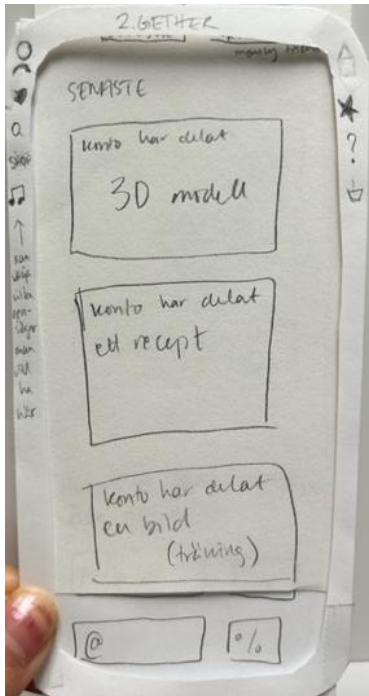 2.GETHER
SENASTE
konto har delat
3D modell
konto har delat
ett recept
konto har delat
en bild
(träning)
@
%
?
man
vill
ha
här